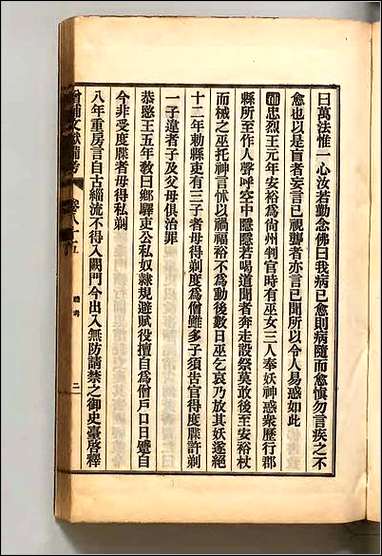 曰萬法惟一心汝若勤念佛曰我病已愈則病隨而愈愼勿言疾之不
愈也以是盲者妄言已視聾者亦言已聞所以令人易惑如此
補忠烈王元年安裕爲尙州判官時有巫女三人奉妖神惑衆歷行郡
縣所至作人聲呼空中隱隱若喝道聞者奔走設祭莫敢後至安裕杖
而械之巫托神言怵以禍福裕不爲動後數日巫乞哀乃放其妖遂絶
十二年勅縣吏有三子者毋得剃度爲僧雖多子須告官得度牒許剃
一子違者子及父母俱治罪
恭愍王五年敎曰鄕驛吏公私奴隷規避賦役擅自爲僧戶口日蹙自
今非受度牒者毋得私剃
八年重房言自古緇流不得入闕門今出入無防請禁之御史臺啓釋
增補文獻備考 卷八十五 禮考 二